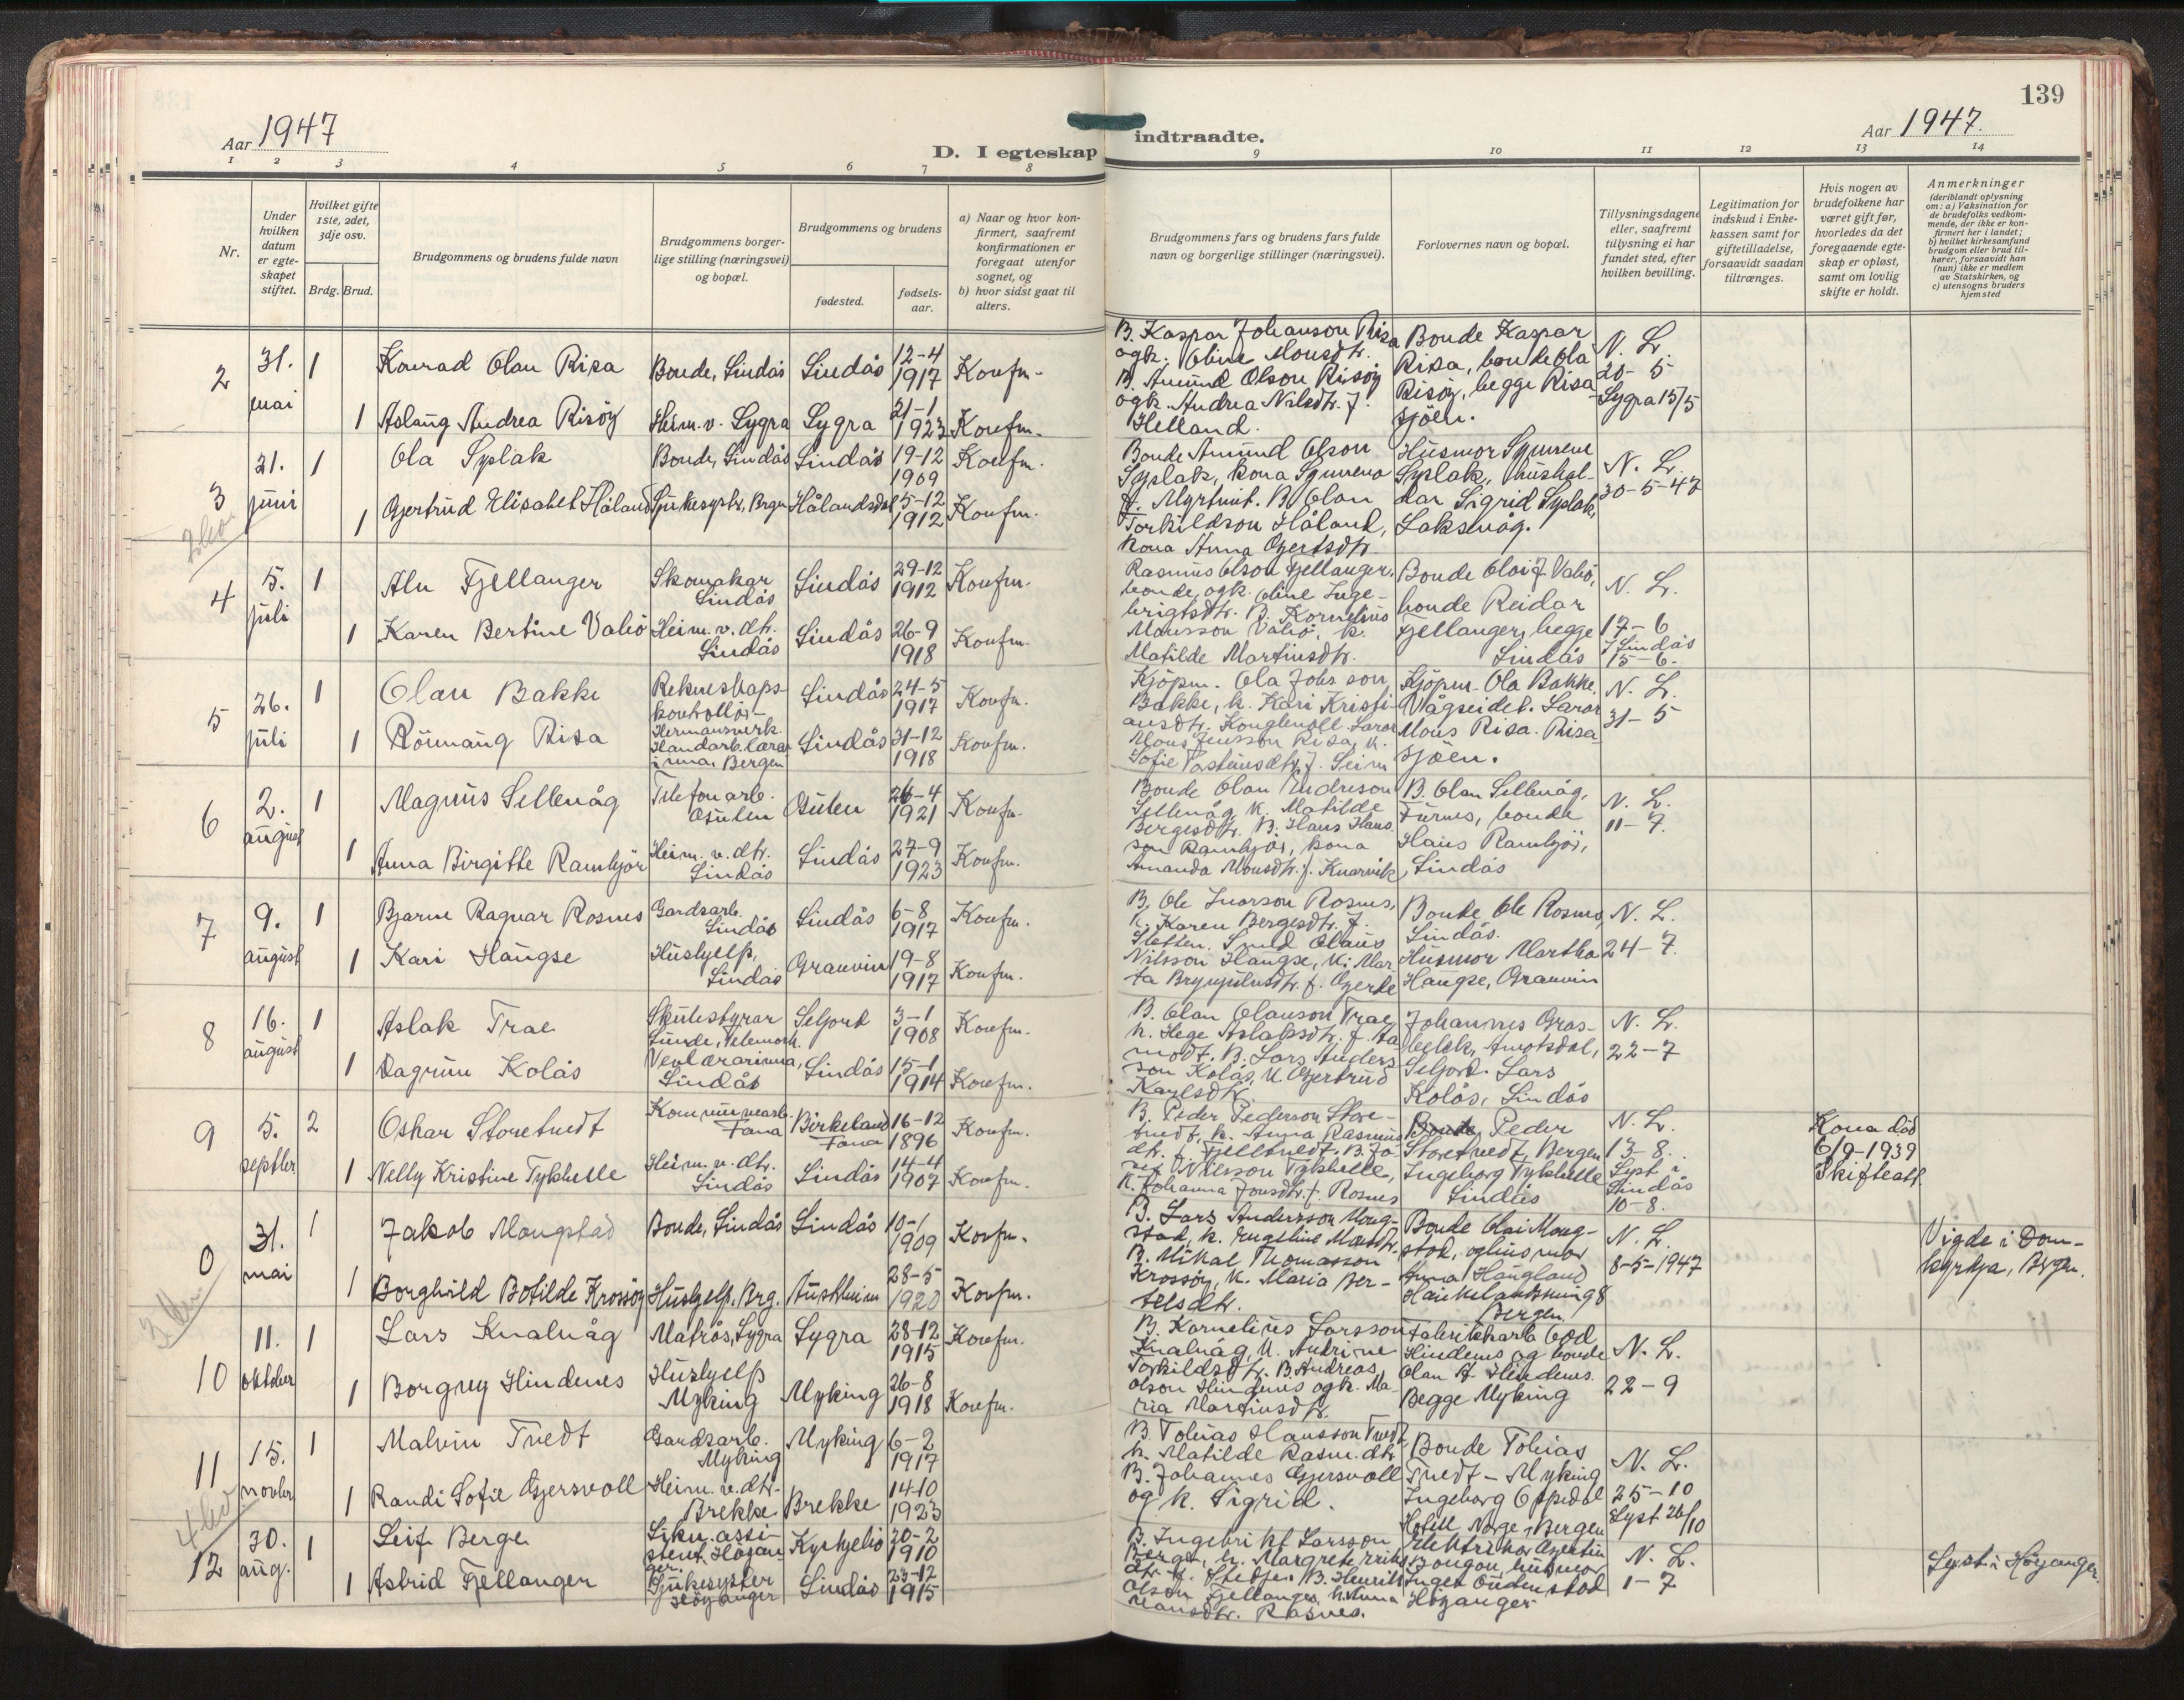 139
Aar 1947
D. I egteskap
indtraadte.
Aar 1947.
1 2 3 4 5 6 7 8 9 10 11 12 13 14
Nr.
Under hvilken datum er egteskapet stiftet.
Hvilket gifte 1ste, 2det, 3dje osv.
Brdg. Brud.
Brudgommens og brudens fulde navn
Brudgommens borgerlige stilling (næringsvei) og bopæl.
Brudgommens og brudens
fødested.
fødselsaar.
a) Naar og hvor konfirmert, saafremt konfirmationen er foregaat utenfor sognet, og
b) hvor sidst gaat til alters.
Brudgommens fars og brudens fars fulde navn og borgerlige stillinger (næringsvei).
Forlovernes navn og bopæl.
Tillysningsdagene eller, saafremt tillysning ei har fundet sted, efter hvilken bevilling.
Legitimation for indskud i Enkekassen samt for giftetilladelse, forsaavidt saadan tiltrænges.
Hvis nogen av brudefolkene har været gift før, hvorledes da det foregaaende egteskap er opløst, samt om lovlig skifte er holdt.
Anmerkninger (deriblandt oplysning om: a) Vaksination for de brudefolks vedkommende, der ikke er konfirmert her i landet; b) hvilket kirkesamfund brudgom eller brud tilhører, forsaavidt han (hun) ikke er medlem av Statskirken, og c) utensogns bruders hjemsted
2 31. mai 1 Konrad Olau Risa Bonde, Lindås Lindås 12-4 1917 Konfm.
1 Aslaug Andrea Risöy Heim. v. Lygra Lygra 21-1 1923 Konfm.
B. Kaspar Johanson Risa
ogk. Oline Monsdtr.
B. Amund Olson Risöy
ogk. Andrea Nilsdtr. f.
Helland.
Bonde Kaspar
Risa, bonde Ola
Risöy, begge Risa-
sjöen.
N. L.
20-5-
Lygra 15/5
3 21. juni 1 Ola Syslak Bonde, Lindås Lindås 19-12 1909 Konfm.
1 Gjertrud Elisabet Håland Sjukesystr, Brgn Hålandsdal 5-12 1912 Konfm.
Bonde Amund Olson
Syslak, kona Synneva
f. Myrtveit. B. Olan
Torkildson Håland,
kona Anna Gjertsdtr.
Husmor Synneve
Syslak, hushal-
dar Sigrid Syslak,
Laksevåg.
N. L.
30-5-47
4 5. juli 1 Alv Fjellanger Skomakar Lindås Lindås 29-12 1912 Konfm.
1 Karen Bertine Valiö Heim. v. dtr. Lindås Lindås 26-9 1918 Konfm.
Rasmus Olson Fjellanger,
bonde, ogk. Oline Inge-
brigtsdtr. B. Kornelius
Monsson Valiö, k.
Matilde Martinsdtr.
Bonde Olai J. Valiö,
bonde Reidar
Fjellanger, begge
Lindås
N. L.
17-6
i Lindås
15-6-
5 26. juli 1 Olav Bakke Rekneskaps-
kontollör-
Hermansverk Lindås 24-5 1917 Konfm.
1 Rönnaug Risa Handarb. lærar
inna, Bergen Lindås 31-12 1918 Konfm.
Kjöpm. Ola Johs son
Bakke, k. Kari Kristi-
ansdtr. Konglevoll. Lærar
Mons Jensson Risa, k.
Sofie f. Seim
Kjöpm. Ola Bakke,
Vågseidet. Lærar
Mons Risa. Risa-
sjöen.
N. L.
31-5
6 2. august 1 Magnus Sellevåg Telefonarb.
Osulen Osulen 26-4 1921 Konfm.
1 Anna Birgitte Rambjör Heim. v. dtr.
Lindås Lindås 27-9 1923 Konfm.
Bonde Olan Endreson
Sellevåg, k. Matilde
Bergesdtr. B. Hans Hans
son Rambjör, kona
Amanda Monsdtr. f. Knarvik
B. Olan Sellevåg,
Furnes, bonde
Hans Rambjör,
Lindås
N. L.
11-7.
7 9. august 1 Bjarne Ragnar Rosnes Gardsarb.
Lindås Lindås 6-8 1917 Konfm.
1 Kari Haugse Hushjelp,
Lindås Granvin 19-8 1917 Konfm.
B. Ole Ivarson Rosnes,
k. Karen Bergesdtr. f.
Sletten. Smed Olaus
Nilsson Haugse, k. Mar
ta Brynjulvsdtr. f. Gjerde
Bonde Ole Rosnes,
Lindås.
Husmor Martha
Haugse, Granvin
N. L.
24-7.
8 16. august 1 Aslak Trae Skulestyrar
Lunde, Telemark. Seljord 3-1 1908 Konfm.
1 Dagrun Kolås Vevlærarinna,
Lindås Lindås 15-1 1914 Konfm.
B. Olan Olanson Trae,
k. Hege Aslaksdtr. f. Aa
modt. B. Lars Anders
son Kolås, k. Gjertrud
Karlsdtr.
Johannes Gras-
bekk, Åmotsdal,
Seljord. Lars
Kolås, Lindås
N. L.
22-7
9 5. septber 2 Oskar Storetvedt Kommunearb.
Fana Birkeland
Fana 16-12 1896 Konfm.
1 Nelly Kristine Tykhelle Heim. v. dtr.
Lindås Lindås 14-4 1907 Konfm.
B. Peder Pederson Store-
tvedt, k. Anna Rasmus
dtr. f. Fjelltvedt. B. Jo
Nilsson Tykhelle,
k. Johanna Jonsdtr. f. Rosnes
Bonde Peder
Storetvedt, Bergen
Ingeborg Tykhelle
Lindås
N. L.
13-8.
Lyst i
Lindås
10-8.
Kona död
6/9-1939
Skifteatt.
0 31. mai 1 Jakob Mongstad Bonde, Lindås Lindås 10-1 1909 Konfm.
1 Borghild Botilde Krossöy Hushjelp. Brg. Austrheim 28-5 1920 Konfm.
B. Lars Andersson Mong-
stad, k. Engeline
B. Mikal Thomasson
Krossöy, k. Maria Ber-
telsdtr.
Bonde Olai Mong-
stad, og husmor
Anna Haugland
8
Bergen.
N. L.
8-5-1947
Vigde i Dom-
kyrkja, Brgn.
10 11. oktober 1 Lars Knalvåg Matros, Lygra Lygra 28-12 1915 Konfm.
1 Borgny Hindenes Hushjelp
Myking Myking 26-8 1918 Konfm.
B. Kornelius Larsson
Knalvåg, k. Andrine
Torkildsdtr. B. Andreas
Olson Hindenes ogk. Ma-
ria Martinsdtr.
Fabrikkarb Odd
Hindenes og bonde
Olan A. Hindenes.
Begge Myking
N. L.
22-9
11 15. novber 1 Malvin Tvedt Gardsarb.
Myking Myking 6-2 1917
1 Randi Sofie Gjersvoll Heim. v. dtr.
Brekke Brekke 14-10 1923
B. Tobias Hansson Tvedt
k. Matilde Rasm. dtr
B. Johannes Gjersvoll
og k. Sigrid.
Bonde Tobias
Tvedt - Myking
Ingeborg Oppedal
Hotell Norge, Bergen
N. L.
25-10
Lyst 26/10
12 30. aug. 1 Leif Berge assi-
stent, Höyan-
ger. Kyrkjebö 20-2 1910
1 Astrid Fjellanger Sjukesyster
Höyanger Lindås 23-12 1915
B. Ingebrikt Larsson
Berge, k. Margrete
B. Henrik
Olson Fjellanger, k. Anna
Monsdtr. Rasnes.
Elektriker
husmor
Inga
Höyanger
N. L.
1-7
Lyst i Höyanger.